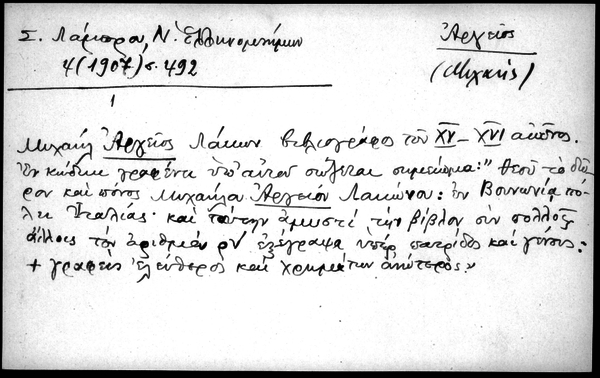 Σ. Λάμπρου, Ν. Ἑλληνομνήμων
4 (1907) σ. 492
Ἀργεῖος
(Μιχαήλ)
Μιχαήλ Ἀργεῖος Λάκων βιβλιογράφος τοῦ XV – XVI αἰῶνος.
Ἐν κώδικι γραφέντι ὑπ' αὐτοῦ σώζεται σημείωμα: "Θεοῦ τὸ δῶ-
ρον καὶ πόνος Μιχαήλα Ἀργείου Λακῶνος: ἐν Βονωνίᾳ πό-
λει Ἰταλίας· καὶ ταύτην τὴν βίβλον σὺν πολλαῖς
ἄλλαις τὸν ἀριθμὸν ρν' ἐξέγραψα ὑπὲρ πατρίδος καὶ γένους:
+ γραφεὺς ἐλεύθερος καὶ χρημάτων ἀνώτερος»